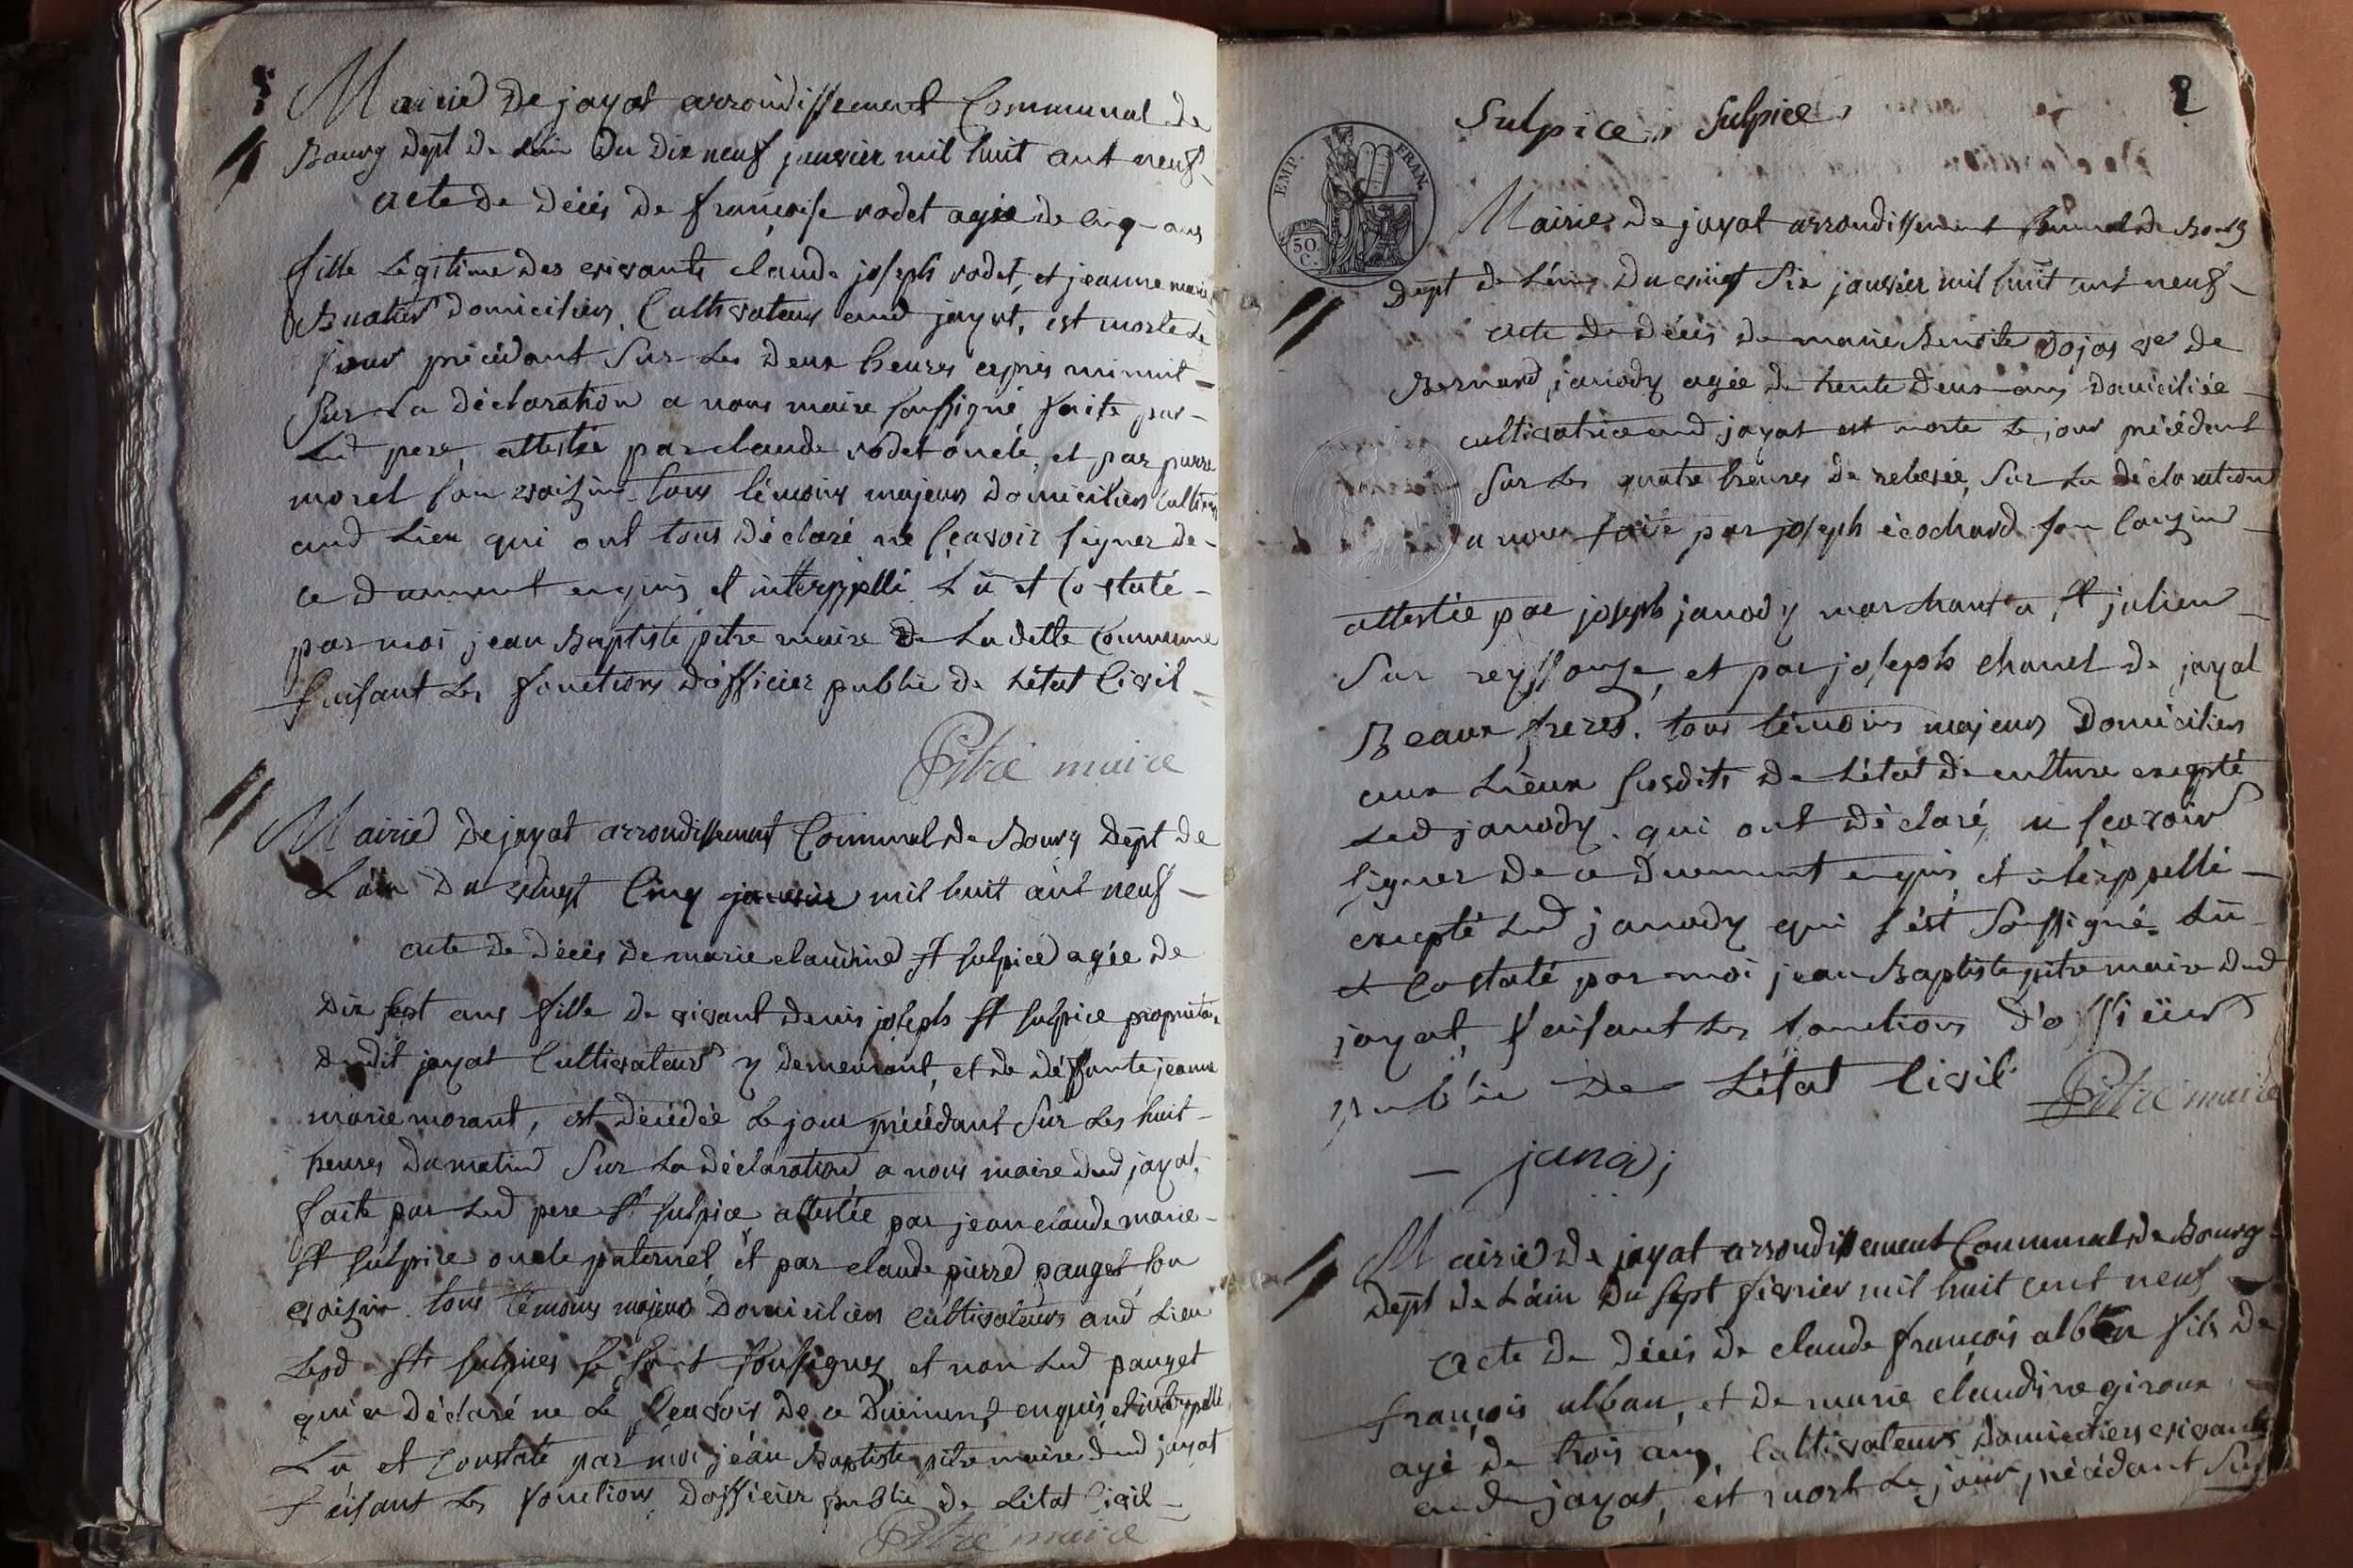 Mairie de jayat arrondissement Communal de
Bourg dept de Lain du dix neuf janvier mil huit cent neuf
acte de décés de françoise rodet agée de cinq ans
fille légitime des vivants claude joseph rodet, et jeanne marie
Buatier domiciliés Cultivateurs aud jayat, est morte le
jour précédant sur les deux heures après minuit
sur la déclaration a nous maire soussigné faite par
led pere, attestée par claude rodet oncle, et par pierre
morel son voisin tous témoins majeurs domiciliés cultivrs
aud lieu qui ont tous déclaré ne sçavoir signer de
ce dument enquis et interppellé Lu et Costaté
par moi jean Baptiste pitre maire de Ladette Commune
faisant les fonctions d'officier public de Létat Civil
Pitre maire
Mairie de jayat arrondissement Communal de Bourg Dept de
Láin du vingt Cinq janvier mil huit cent neuf
acte de décés de marie claudine st sulpice agée de
dix sept ans fille de vivant denis joseph st sulpice proprietre
dudit jayat Cultivateur y demeurant, et de déffunte jeanne
marie morant, est décédée le jour précédant sur les huit
heures du matin sur la déclaration a nous maire dud jayat,
faite par led pere st sulpice attestée par jean claude marie
st sulpice oncle paternel, et par claude pierre pauget son
voisin tous témoins majeurs domiciliés cultivateurs aud lieu
Lesd sts sulpices se sont soussignés, et non led pauget
qui a déclaré ne le sçavoir de ce duement enquis, et interppellé
Lu et Constaté par moi jean Baptiste pitre maire dud jayat
faisant les fonctions d'officier public de Létat Civil
Pitre maire
2
Sulpice, Sulpice,
EMP. FRAN.
50. C.
Mairie de jayat arrondissement Comunal de Bourg
dept de Láin, du vingt six janvier mil huit cent neuf
acte de décés de marie Benoite dojas ve de
Bernard janody agée de trente deux ans domiciliée
cultivatrice aud jayat est morte le jour précédant
sur les quatre heures de relevée, sur la déclaration
a nous faite par joseph écochard son Cousin
attestée par joseph janody marchant a st julien
sur reyssouze, et par joseph chanel de jayat
Beaux freres. tous témoins majeurs domiciliés
aux Lieux susdits de Létat de culture excepté
Led janody. qui ont déclaré, ne sçavoir
signer de ce duement enquis, et interppellé
excepté led janody qui s'ést soussigné. Lu
et Costaté par moi jean Baptiste pitre maire dud
jayat, faisant les fonctions d'officier
public de Létat Civil
Pitre maire
janodj
Mairie de jayat arrondissement Communal de Bourg
Dept de Láin du sept février mil huit cent neuf
acte de décés de claude françois alban fils de
françois alban, et de marie claudine giroux
agé de trois ans, Cultivateurs domiciliés vivants
aud jayat, est mort le jour précédant sur